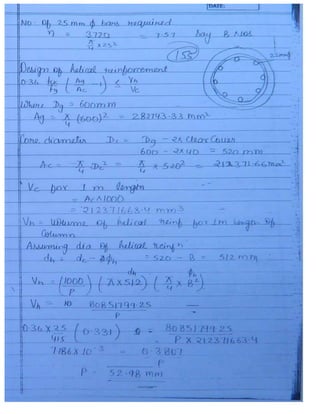 DATE:
No. of 25 mm ϕ bars required
n = 3720 / (π/4 × 25²) = 7.57 Say 8 Nos
155
25mmϕ
Design of helical reinforcement
0.36 fck/fy (Ag/Ac - 1) ≤ Vh/Vc
Where Dg = 600mm
Ag = π/4 (600)² = 282743.33 mm²
Core diameter Dc = Dg - 2× Clear Cover
600 - 2×40 = 520 mm
Ac = π/4 Dc² = π/4 × 520² = 212371.66 mm²
Vc for 1 m length
= Ac × 1000
= 212371663.4 mm³
Vh = Volume of helical reinf for 1m length of
Column
Assuming dia of helical reinfn
dh = dc - ϕh = 520 - 8 = 512 mm
dh ϕh
Vh = (1000/P) (π×512) (π/4 × 8²)
Vh = 80851799.25 / P
0.36 × 25/415 (0.331) = 80851799.25 / P × 212371663.4
7.186 × 10⁻³ = 0.3807 / P
P = 52.98 mm